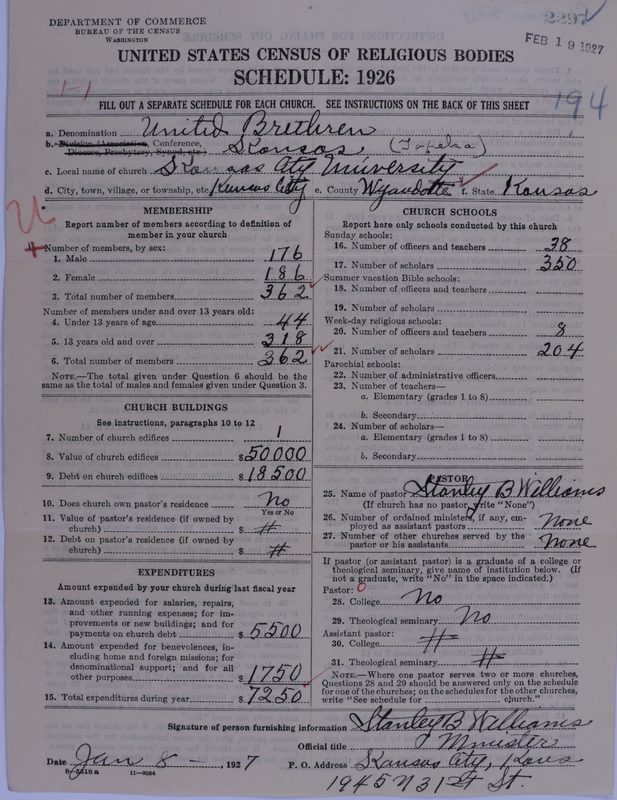 DEPARTMENT OF COMMERCE
BUREAU OF THE CENSUS
WASHINGTON
FEB 19 1927
UNITED STATES CENSUS OF RELIGIOUS BODIES
SCHEDULE: 1926
194
FILL OUT A SEPARATE SCHEDULE FOR EACH CHURCH. SEE INSTRUCTIONS ON THE BACK OF THIS SHEET
a. Denomination United Brethren
b. Division (Association), Conference, Kansas (Topeka)
Diocese, Presbytery, Synod, etc.)
c. Local name of church Kansas City University
d. City, town, village, or township, etc. Kansas City e. County Wyandotte f. State Kansas
MEMBERSHIP
Report number of members according to definition of
member in your church
Number of members, by sex:
1. Male 176
2. Female 186
3. Total number of members 362
Number of members under and over 13 years old:
4. Under 13 years of age 44
5. 13 years old and over 318
6. Total number of members 362
NOTE.—The total given under Question 6 should be
same as the total of males and females given under Question 3.
CHURCH BUILDINGS
See instructions, paragraphs 10 to 12
7. Number of church edifices 1
8. Value of church edifices $50000
9. Debt on church edifices $18500
10. Does church own pastor's residence No
Yes or No
11. Value of pastor's residence (if owned by
church) $
12. Debt on pastor's residence (if owned by
church) $
EXPENDITURES
Amount expended by your church during last fiscal year
13. Amount expended for salaries, repairs,
and other running expenses; for im-
provements or new buildings; and for
payments on church debt $5500
14. Amount expended for benevolences, in-
cluding home and foreign missions; for
denominational support; and for all
other purposes $1750
15. Total expenditures during year $7250
CHURCH SCHOOLS
Report here only schools conducted by this church
Sunday schools:
16. Number of officers and teachers 38
17. Number of scholars 350
Summer vacation Bible schools:
18. Number of officers and teachers
19. Number of scholars
Week-day religious schools:
20. Number of officers and teachers 8
21. Number of scholars 204
Parochial schools:
22. Number of administrative officers
23. Number of teachers—
a. Elementary (grades 1 to 8)
b. Secondary
24. Number of scholars—
a. Elementary (grades 1 to 8)
b. Secondary
PASTOR
25. Name of pastor Stanley B Williams
(If church has no pastor, write "None")
26. Number of ordained ministers, if any, em-
ployed as assistant pastors None
27. Number of other churches served by the
pastor or his assistants None
If pastor (or assistant pastor) is a graduate of a college or
theological seminary, give name of institution below. (If
not a graduate, write "No" in the space indicated.)
Pastor: 0
28. College No
29. Theological seminary No
Assistant pastor:
30. College
31. Theological seminary
NOTE.—Where one pastor serves two or more churches,
Questions 28 and 29 should be answered only on the schedule
for one of the churches; on the schedules for the other churches,
write "See schedule for church."
Signature of person furnishing information Stanley B Williams
Official title Minister
Date Jan 8 - , 1927 P. O. Address Kansas City, Kans
8-5518a 11-9054
1945 N 31st St.